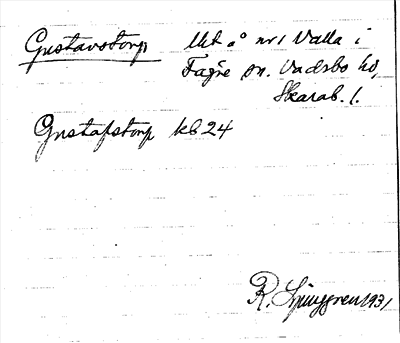 Gustavstorp Utk å nr 1 Valla i
Fägre sn. Vadsbo hd,
Skarab. l.
Gustafstorp kb 24
R. Ljunggren 1931